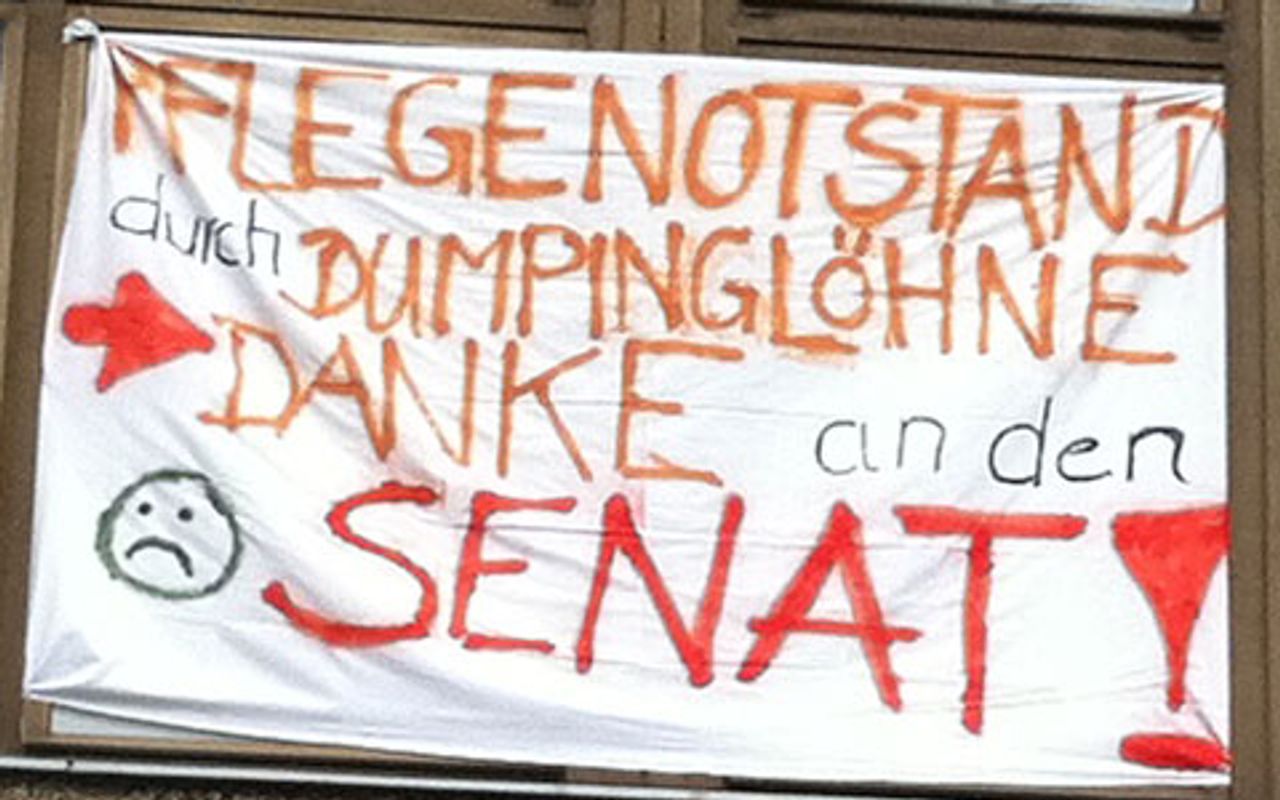 PFLEGENOTSTAND
durch DUMPINGLÖHNE
DANKE an den
SENAT!